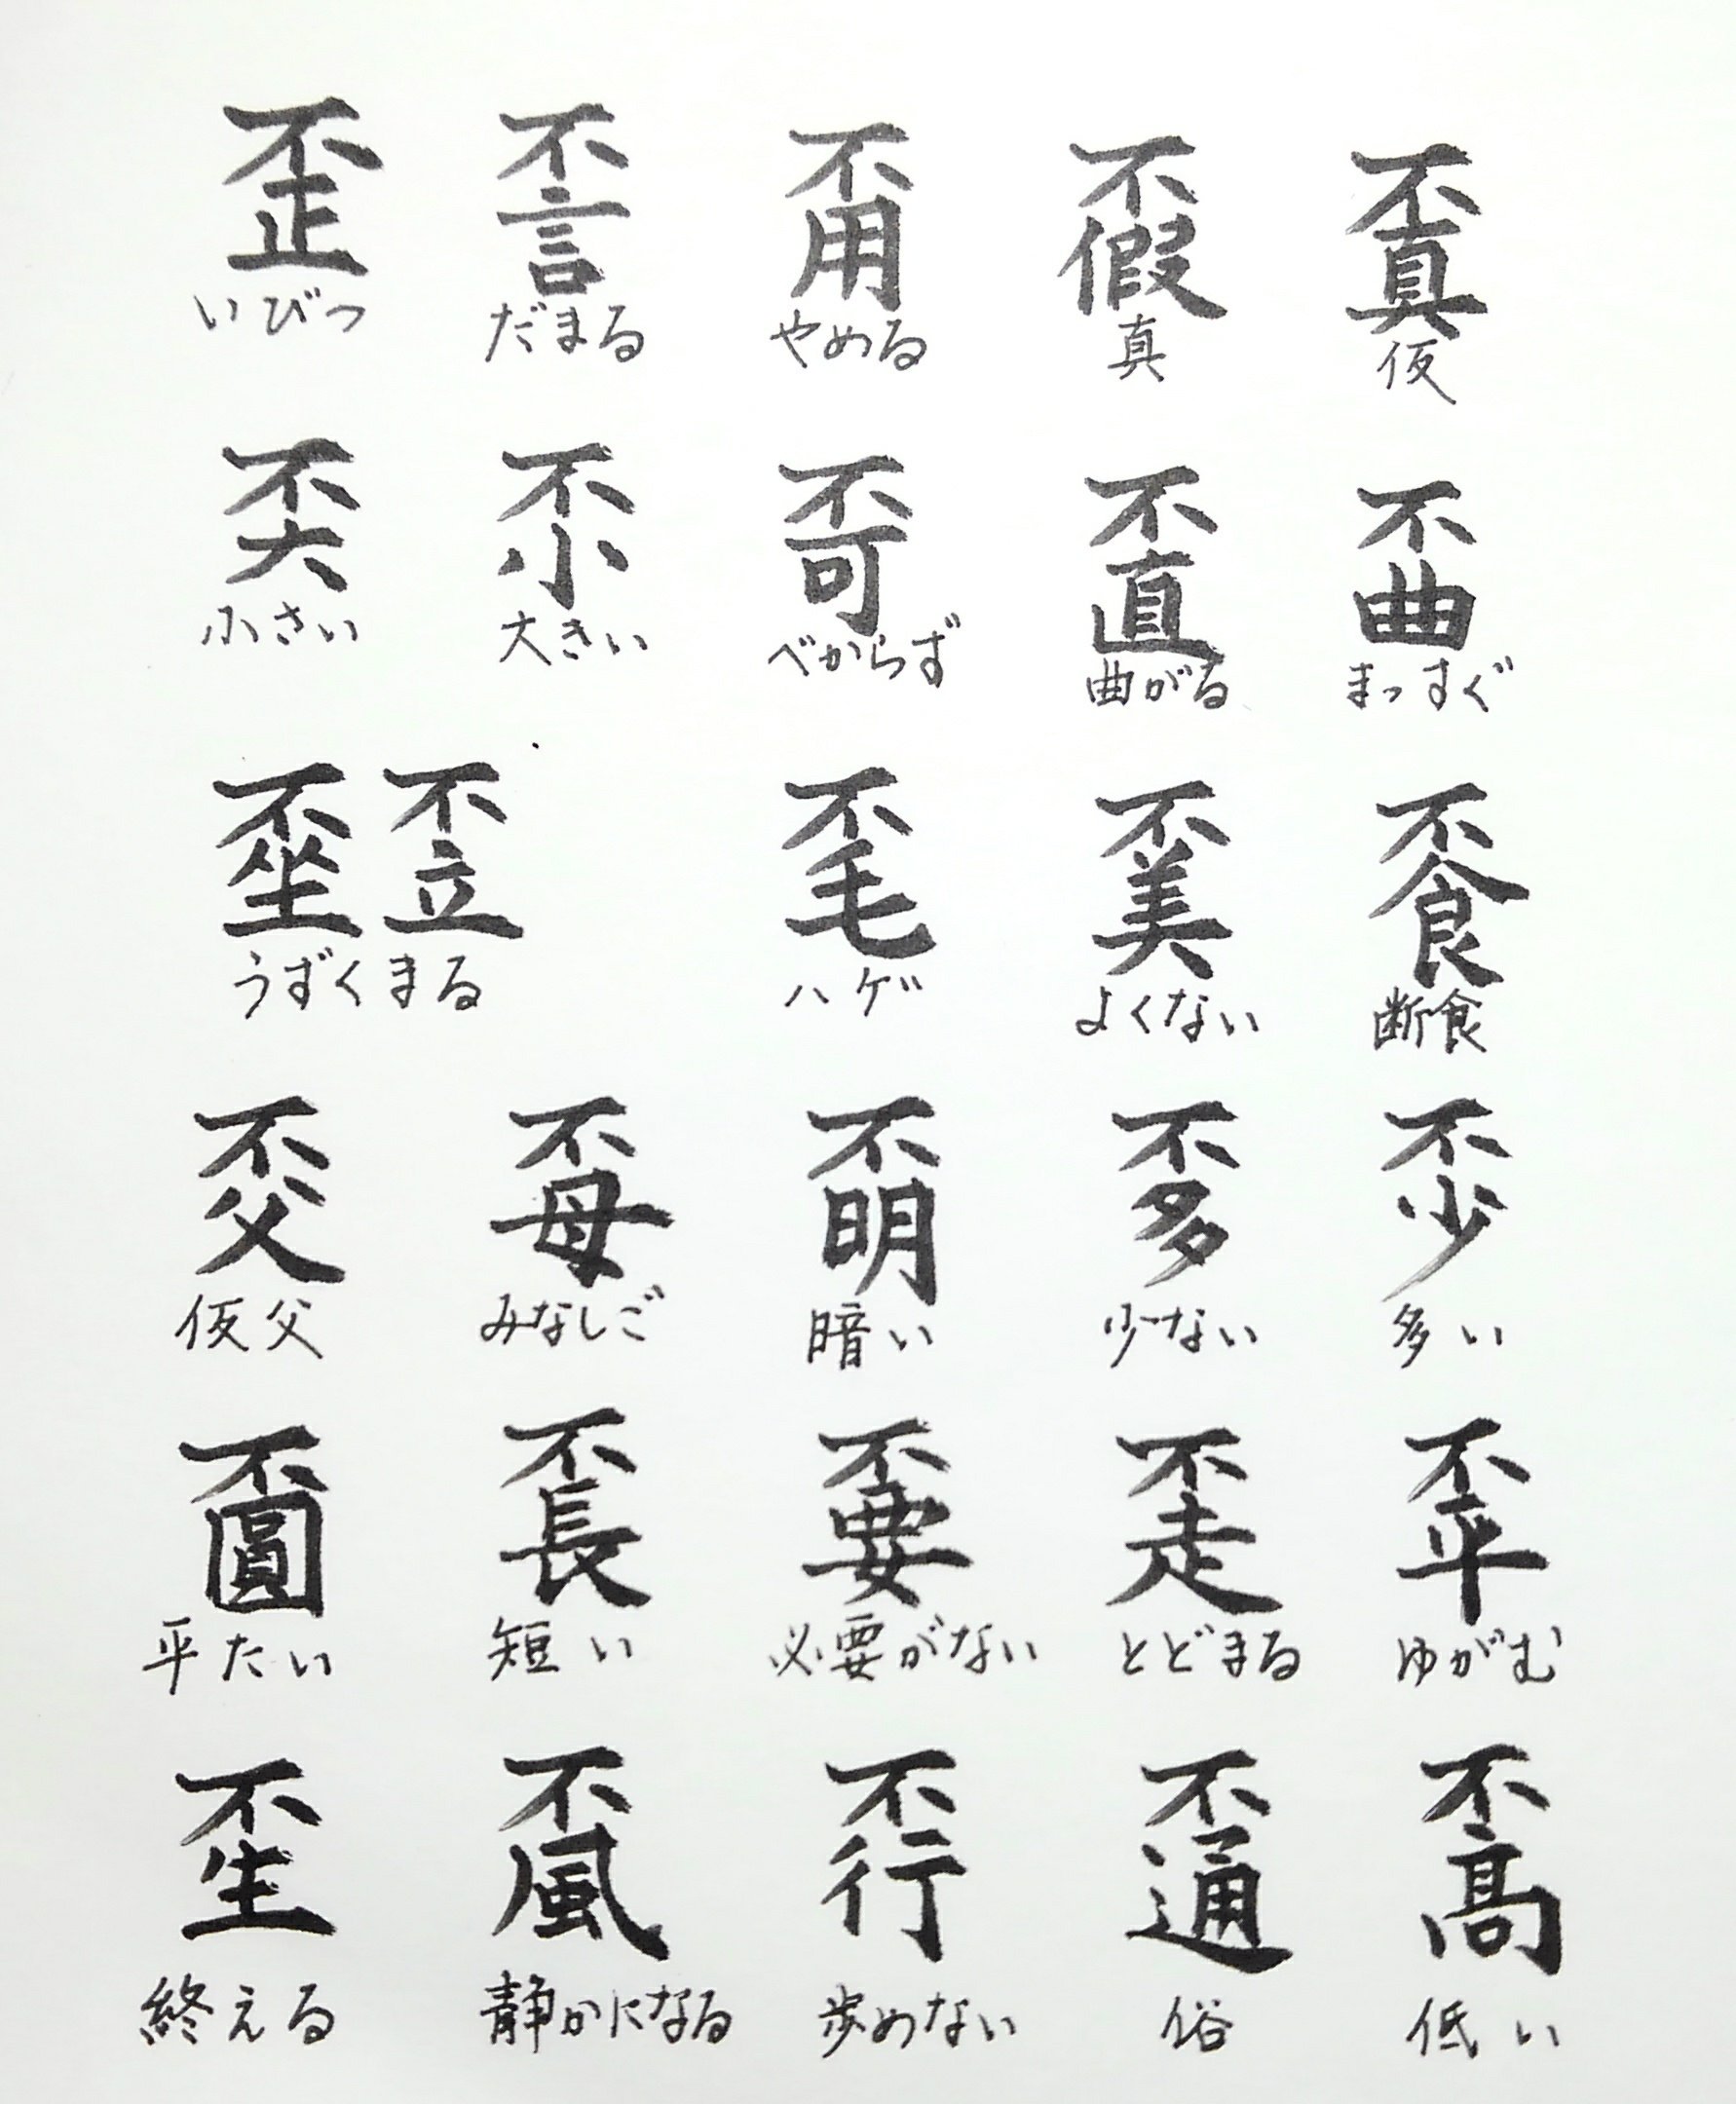 歪 不言 甭 不假 不真
いびつ だまる やめる 真 仮
奀 不小 不可 不直 不曲
小さい 大きい べからず 曲がる まっすぐ
不坐 不立 不毛 不美 不食
うずくまる ハゲ よくない 断食
不父 不母 不明 不多 不少
仮父 みなしご 暗い 少ない 多い
不圓 不長 不要 不走 不平
平たい 短い 必要がない とどまる ゆがむ
不生 不風 不行 不通 不高
終える 静かになる 歩めない 俗 低い